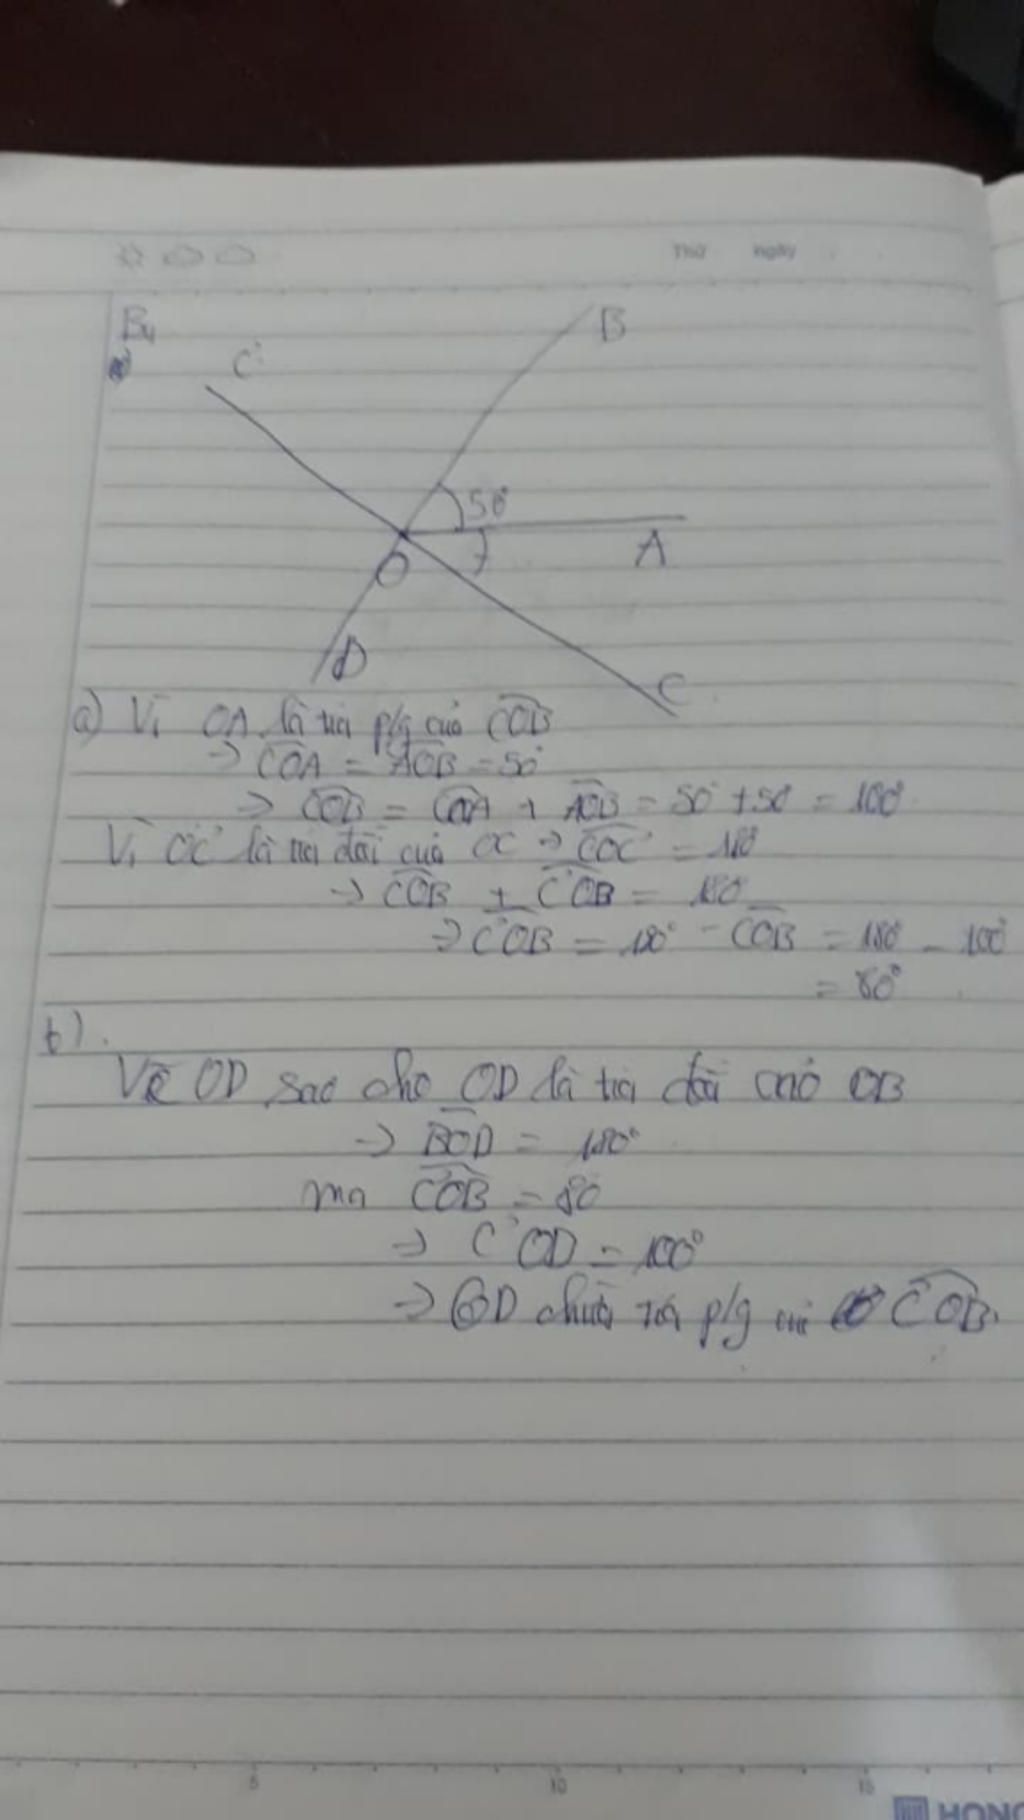 Thứ ngày
B4
C'
B
50°
A
O
D
C
a) Vì OA là tia p/g của COB
→ COA = AOB = 50°
→ COB = COA + AOB = 50° + 50° = 100°
Vì OC' là tia đối của OC → COC' = 180°
→ COB + C'OB = 180
→ C'OB = 180° - COB = 180° - 100°
= 80°
b).
Vẽ OD sao cho OD là tia đối của OB
→ BOD = 180°
mà C'OB = 80
→ C'OD = 100°
→ OD p/g C'OB.
5 10 15
HONG